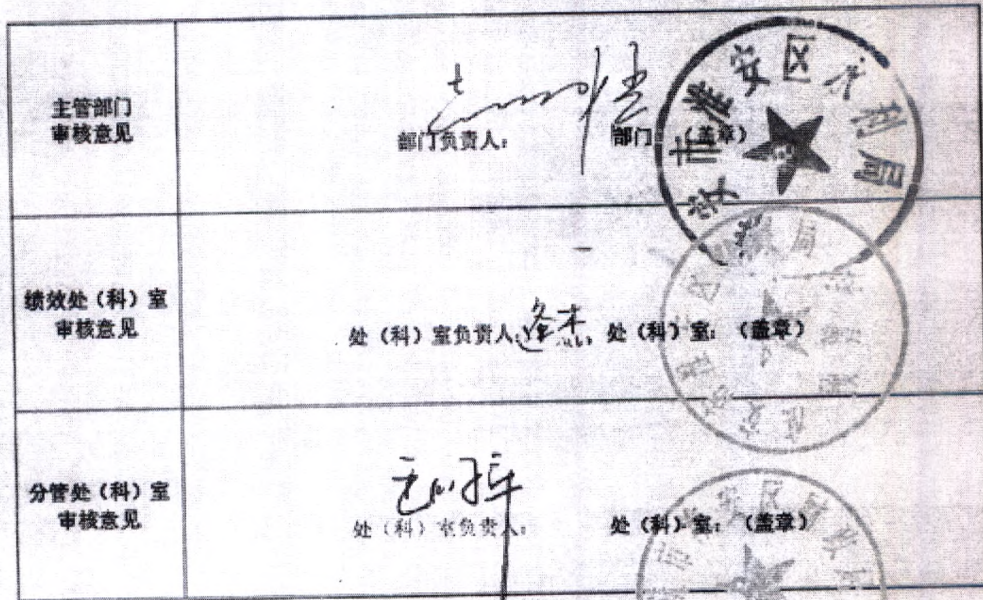 主管部门
审核意见
部门负责人：
部门：（盖章）
淮安市淮安区水利局
绩效处（科）室
审核意见
处（科）室负责人：逄杰
处（科）室：（盖章）
分管处（科）室
审核意见
处（科）室负责人：
处（科）室：（盖章）
市淮安区财政局